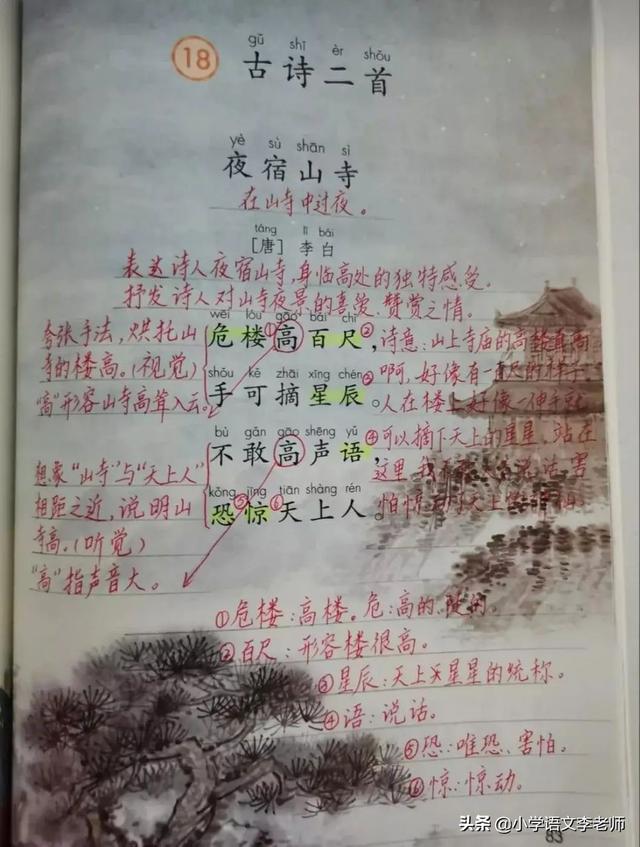 gǔ shī èr shǒu
18 古诗二首
yè sù shān sì
夜宿山寺
在山寺中过夜。
táng lǐ bái
[唐] 李白
表达诗人夜宿山寺,身临高处的独特感受。
抒发诗人对山寺夜景的喜爱、赞赏之情。
夸张手法,烘托山
寺的楼高。(视觉)
"高"形容山寺高耸入云。
wēi lóu gāo bǎi chǐ
危楼①高百尺②,
shǒu kě zhāi xīng chén
手可摘星辰③。
bù gǎn gāo shēng yǔ
不敢高声语④,
kǒng jīng tiān shàng rén
恐⑤惊⑥天上人。
诗意:山上寺庙的高楼真高
啊,好像有一百尺的样子
人在楼上好像一伸手就
可以摘下天上的星星。站在
这里 我不 说话 害
怕惊动 天上
想象"山寺"与"天上人"
相距之近,说明山
寺高。(听觉)
"高"指声音大。
①危楼:高楼。危:高的,陡的。
②百尺:形容楼很高。
③星辰:天上星星的统称。
④语:说话。
⑤恐:唯恐、害怕。
⑥惊:惊动。
83
头条 @小学语文李老师